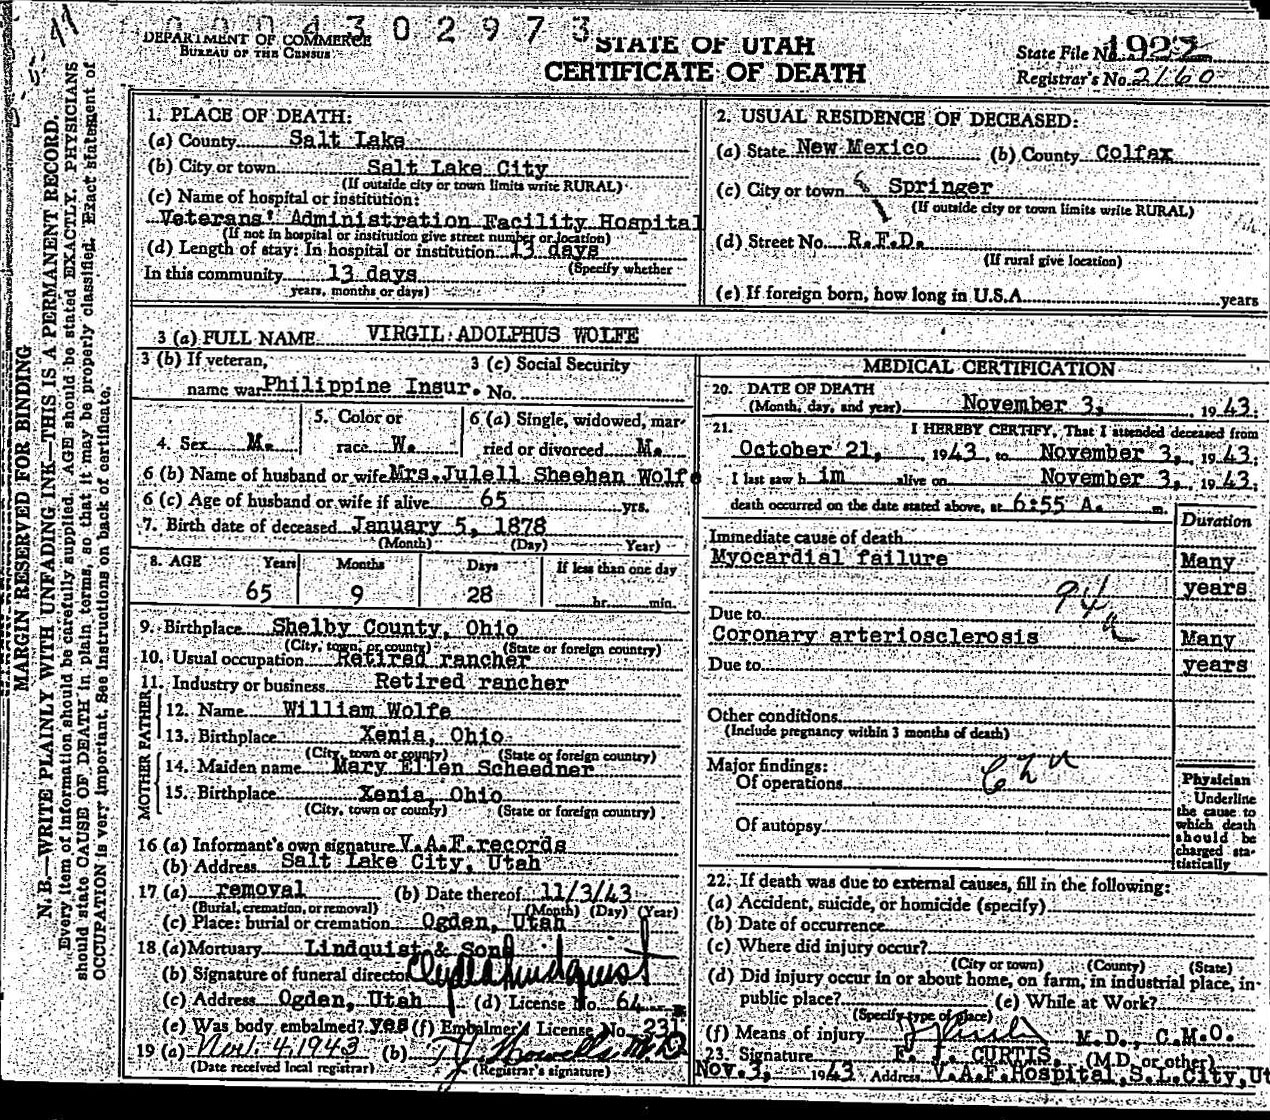 0004302973
DEPARTMENT OF COMMERCE
BUREAU OF THE CENSUS
STATE OF UTAH
CERTIFICATE OF DEATH
State File No. 1927
Registrar's No. 2160
MARGIN RESERVED FOR BINDING
N. B.—WRITE PLAINLY WITH UNFADING INK—THIS IS A PERMANENT RECORD.
Every item of information should be carefully supplied. AGE should be stated EXACTLY. PHYSICIANS
should state CAUSE OF DEATH in plain terms, so that it may be properly classified. Exact statement of
OCCUPATION is very important. See instructions on back of certificate.
1. PLACE OF DEATH:
(a) County Salt Lake
(b) City or town Salt Lake City
(If outside city or town limits write RURAL)
(c) Name of hospital or institution:
Veterans' Administration Facility Hospital
(If not in hospital or institution give street number or location)
(d) Length of stay: In hospital or institution 13 days
(Specify whether
In this community 13 days
years, months or days)
2. USUAL RESIDENCE OF DECEASED:
(a) State New Mexico (b) County Colfax
(c) City or town Springer
(If outside city or town limits write RURAL)
(d) Street No. R.F.D.
(If rural give location)
(e) If foreign born, how long in U.S.A. years
3 (a) FULL NAME VIRGIL ADOLPHUS WOLFE
3 (b) If veteran,
name war Philippine Insur.
3 (c) Social Security
No.
4. Sex M.
5. Color or
race W.
6 (a) Single, widowed, mar-
ried or divorced M.
6 (b) Name of husband or wife Mrs. Julell Sheehan Wolfe
6 (c) Age of husband or wife if alive 65 yrs.
7. Birth date of deceased January 5, 1878
(Month) (Day) Year)
8. AGE Years Months Days If less than one day
65 9 28 hr. min.
9. Birthplace Shelby County, Ohio
(City, town, or county) (State or foreign country)
10. Usual occupation Retired rancher
11. Industry or business Retired rancher
FATHER
12. Name William Wolfe
13. Birthplace Xenia, Ohio
(City, town or county) (State or foreign country)
MOTHER
14. Maiden name Mary Ellen Scheedner
15. Birthplace Xenia, Ohio
(City, town or county) (State or foreign country)
16 (a) Informant's own signature V.A.F. records
(b) Address Salt Lake City, Utah
17 (a) removal (b) Date thereof 11/3/43
(Burial, cremation, or removal) (Month) (Day) (Year)
(c) Place: burial or cremation Ogden, Utah
18 (a) Mortuary Lindquist & Sons
(b) Signature of funeral director Clyde Lindquist
(c) Address Ogden, Utah (d) License No. 64
(e) Was body embalmed? yes (f) Embalmer's License No. 231
19 (a) Nov. 4, 1943 (b) T. J. Howells M.D.
(Date received local registrar) (Registrar's signature)
MEDICAL CERTIFICATION
20. DATE OF DEATH
(Month, day, and year) November 3, 1943.
21. I HEREBY CERTIFY, That I attended deceased from
October 21, 1943 to November 3, 1943.
I last saw h im alive on November 3, 1943.
death occurred on the date stated above, at 6:55 A. m.
Duration
Immediate cause of death
Myocardial failure Many
years
94a
Due to
Coronary arteriosclerosis Many
Due to years
Other conditions
(Include pregnancy within 3 months of death)
Major findings:
Of operations
Of autopsy
Physician
Underline
the cause to
which death
should be
charged sta-
tistically
22. If death was due to external causes, fill in the following:
(a) Accident, suicide, or homicide (specify)
(b) Date of occurrence
(c) Where did injury occur?
(City or town) (County) (State)
(d) Did injury occur in or about home, on farm, in industrial place, in
public place? (e) While at Work?
(Specify type of place)
(f) Means of injury M.D., C.M.O.
23. Signature F. J. CURTIS, (M.D. or other)
Nov. 3, 1943 Address V.A.F. Hospital, S.L. City, Ut